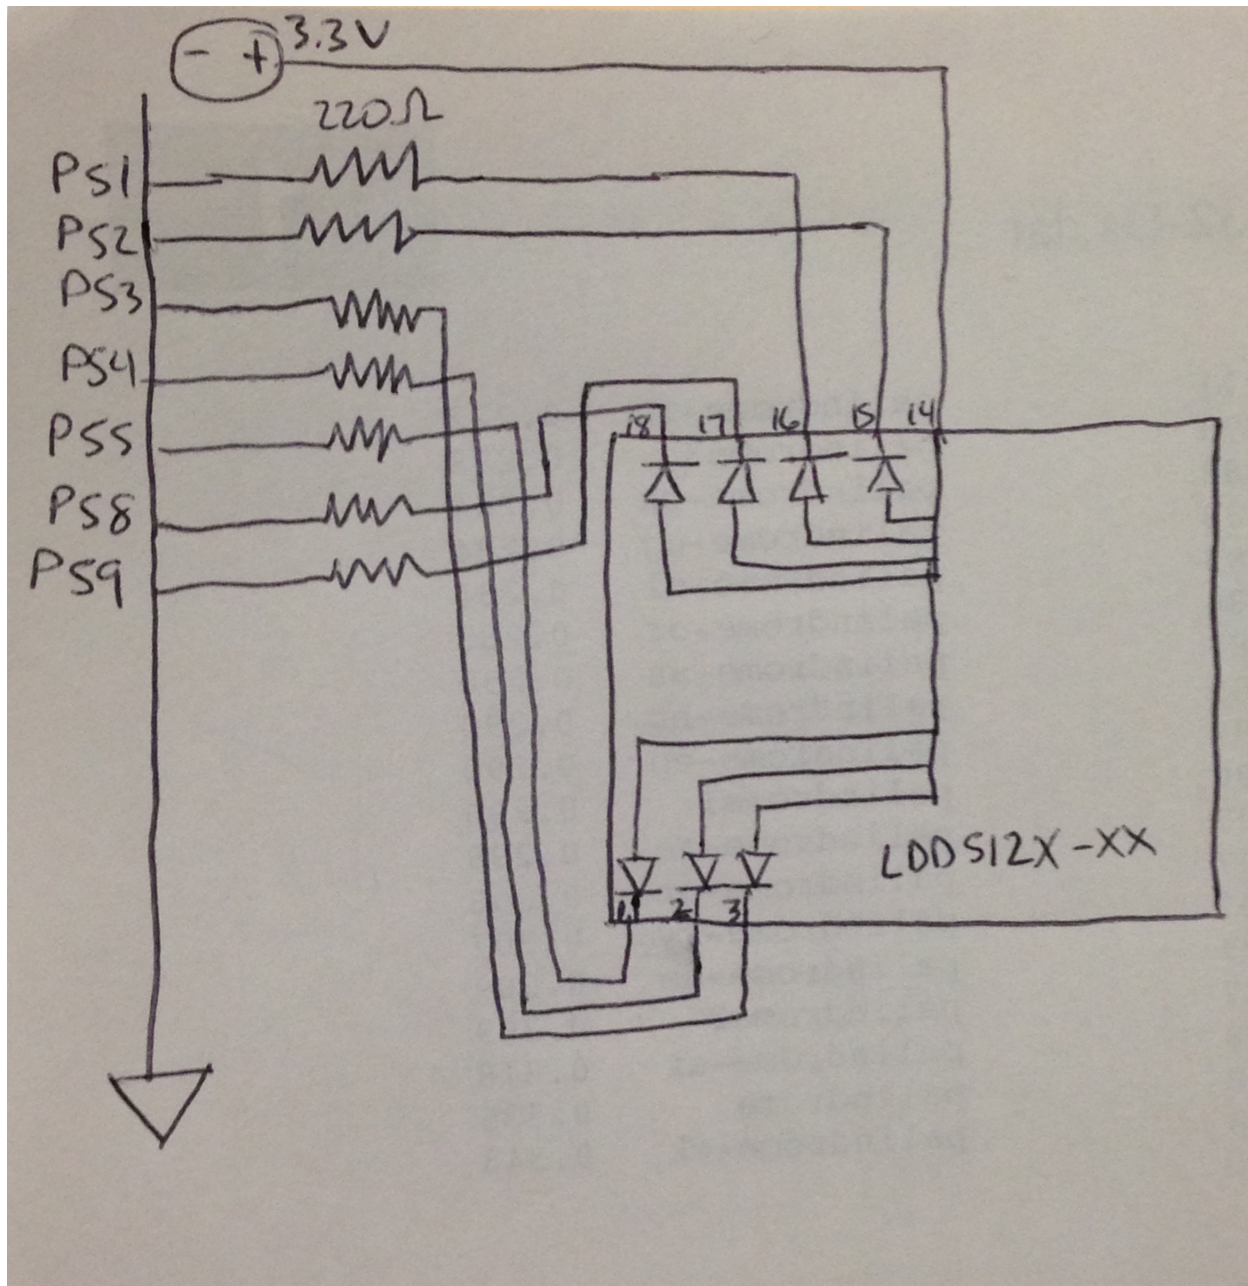 - + 3.3V
220Ω
P51
P52
P53
P54
P55
P58
P59
18 17 16 15 14
LDD512X-XX
1 2 3